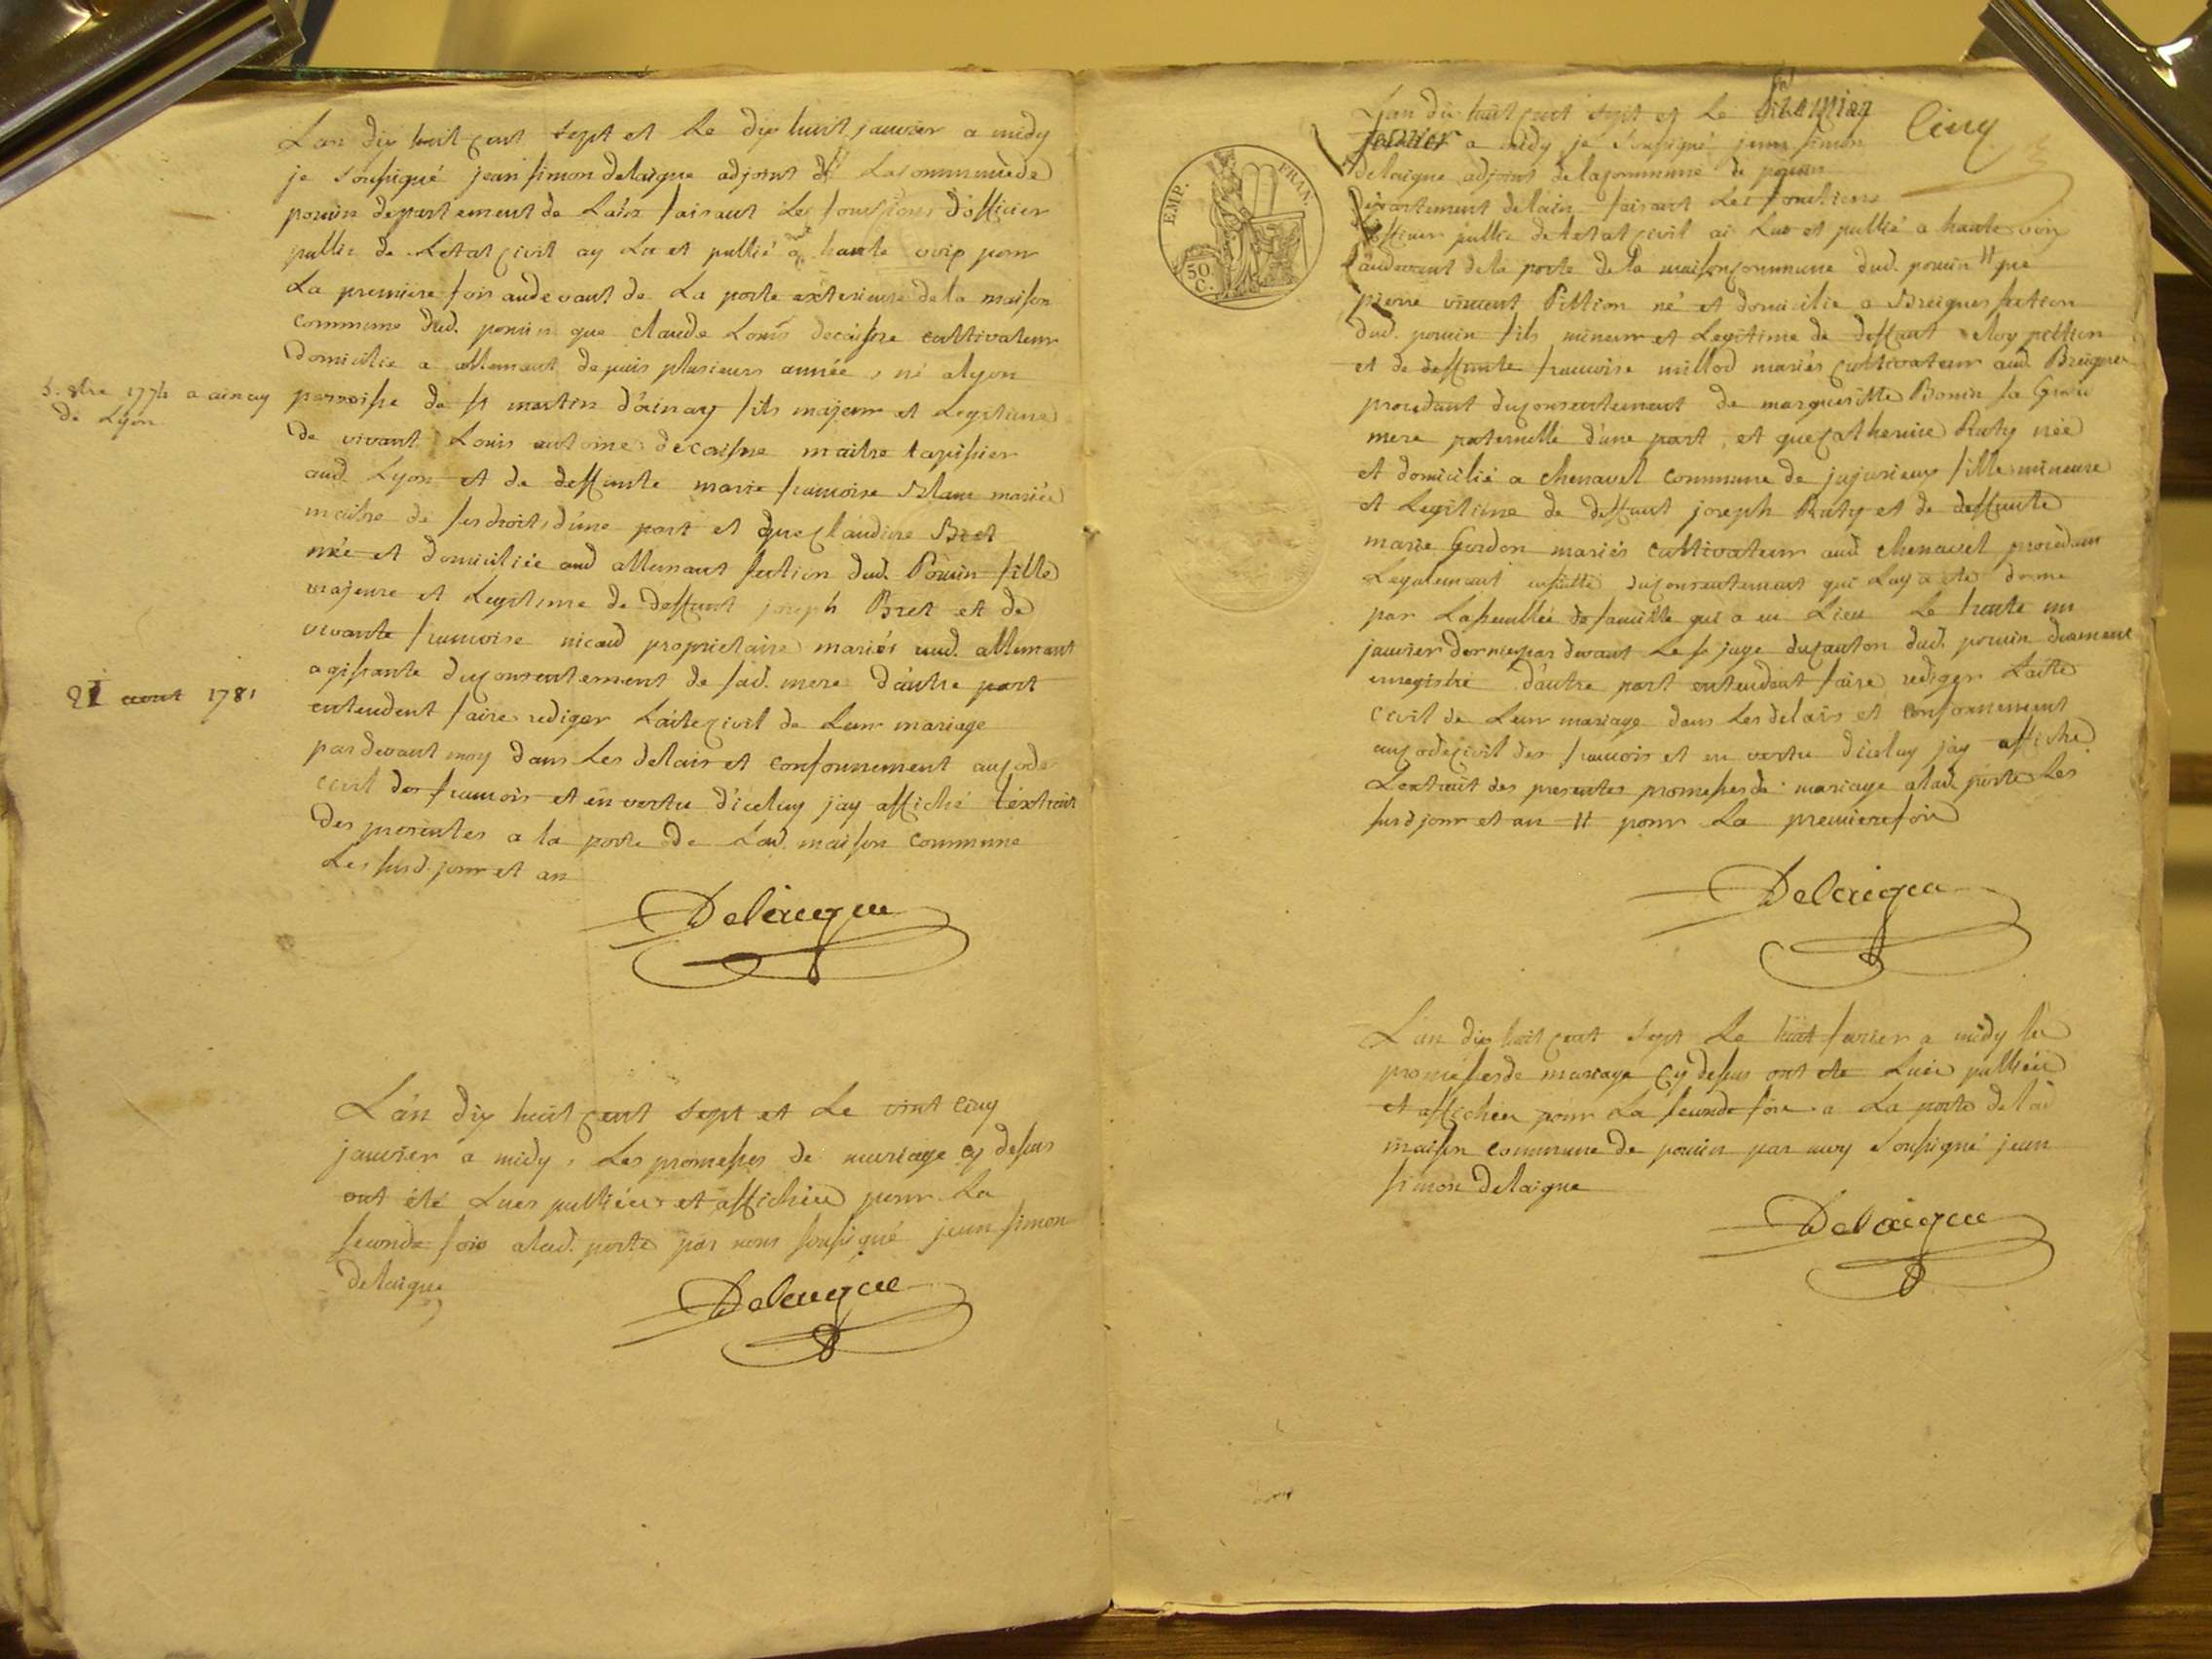 L'an dix huit cent sept et le dix huit janvier a midy
je soussigné jean simon delaigue adjoint de la commune de
poncin departement de L'ain faisant les fonctions d'officier
public de L'etat civil ay lu et publié a haute voix pour
La premiere fois audevant de La porte exterieure de la maison
commune dud. poncin que claude Louis decaisne cultivateur
domicilie a allemant depuis plusieurs année, né a lyon
parroisse de st martin d'ainay fils majeur et Legitime
de vivant Louis antoine decaisne maitre tapissier
aud. Lyon et de deffunte marie francoise Blanc mariés
maitre de ses droits d'une part et que claudine Bret
née et domiciliée aud allemant section dud. Poncin fille
majeure et Legitime de deffunt joseph Bret et de
vivante francoise nicaud proprietaire mariés aud. allemant
agissante du consentement de sad. mere d'autre part
entendent faire rediger L'aite civil de Leur mariage
par devant moy dans Les delais et conformement au code
civil des francois et en vertu d'iceluy j'ay affiché L'extrait
des presentes a la porte de Lad. maison commune
Les susd. jour et an
Delaigue
5. 8bre 1774 a ainay
de Lyon
21 aout 1781
L'an dix huit cent sept et Le vint cinq
janvier a midy, Les promesses de mariage cy dessus
ont été Lues publiées et affichée pour La
seconde fois a lad. porte par nous soussigné jean simon
delaigue
Delaigue
cinq
EMP. FRAN.
50 C.
L'an dix huit cent sept et Le premier
fevrier a midy je soussigné jean simon
delaigue adjoint de la commune de poncin
departement de l'ain faisant Les fonctions
d'officier public de l'etat civil ai Lue et publié a haute voix
audevant de la porte de la maison commune dud. poncin que
pierre vincent Pittion né et domicilie a Breignes section
dud. poncin fils mineur et Legitime de deffunt eloy pittion
et de deffunte francoise millod mariés cultivateur aud. Breignes
procedant du consentement de margueritte Bonin sa Grand
mere paternelle d'une part, et que catherine Raty née
et domicilié a chenavel commune de jujurieux fille mineure
et Legitime de deffunt joseph Raty et de deffunte
marie Gordon mariés cultivateur aud chenavel procedant
Legalement ensuitte du consentement qui Luy a été donné
par L'assemblée de famille qui a eu Lieu Le trente un
janvier dernier par devant Le sr juge du canton dud. poncin duement
enregistré d'autre part entendent faire rediger L'aite
civil de Leur mariage dans Les delais et conformement
au code civil des francois et en vertu d'iceluy j'ay affiché
L'extrait des presentes promesses de mariage a lad. porte Les
susd jour et an pour La premiere fois
Delaigue
L'an dix huit cent sept Le huit fevrier a midy les
promesses de mariage cy dessus ont été Luée publiée
et affichée pour La seconde fois a La porte de lad
maison commune de poncin par moy soussigné jean
simon delaigue
Delaigue